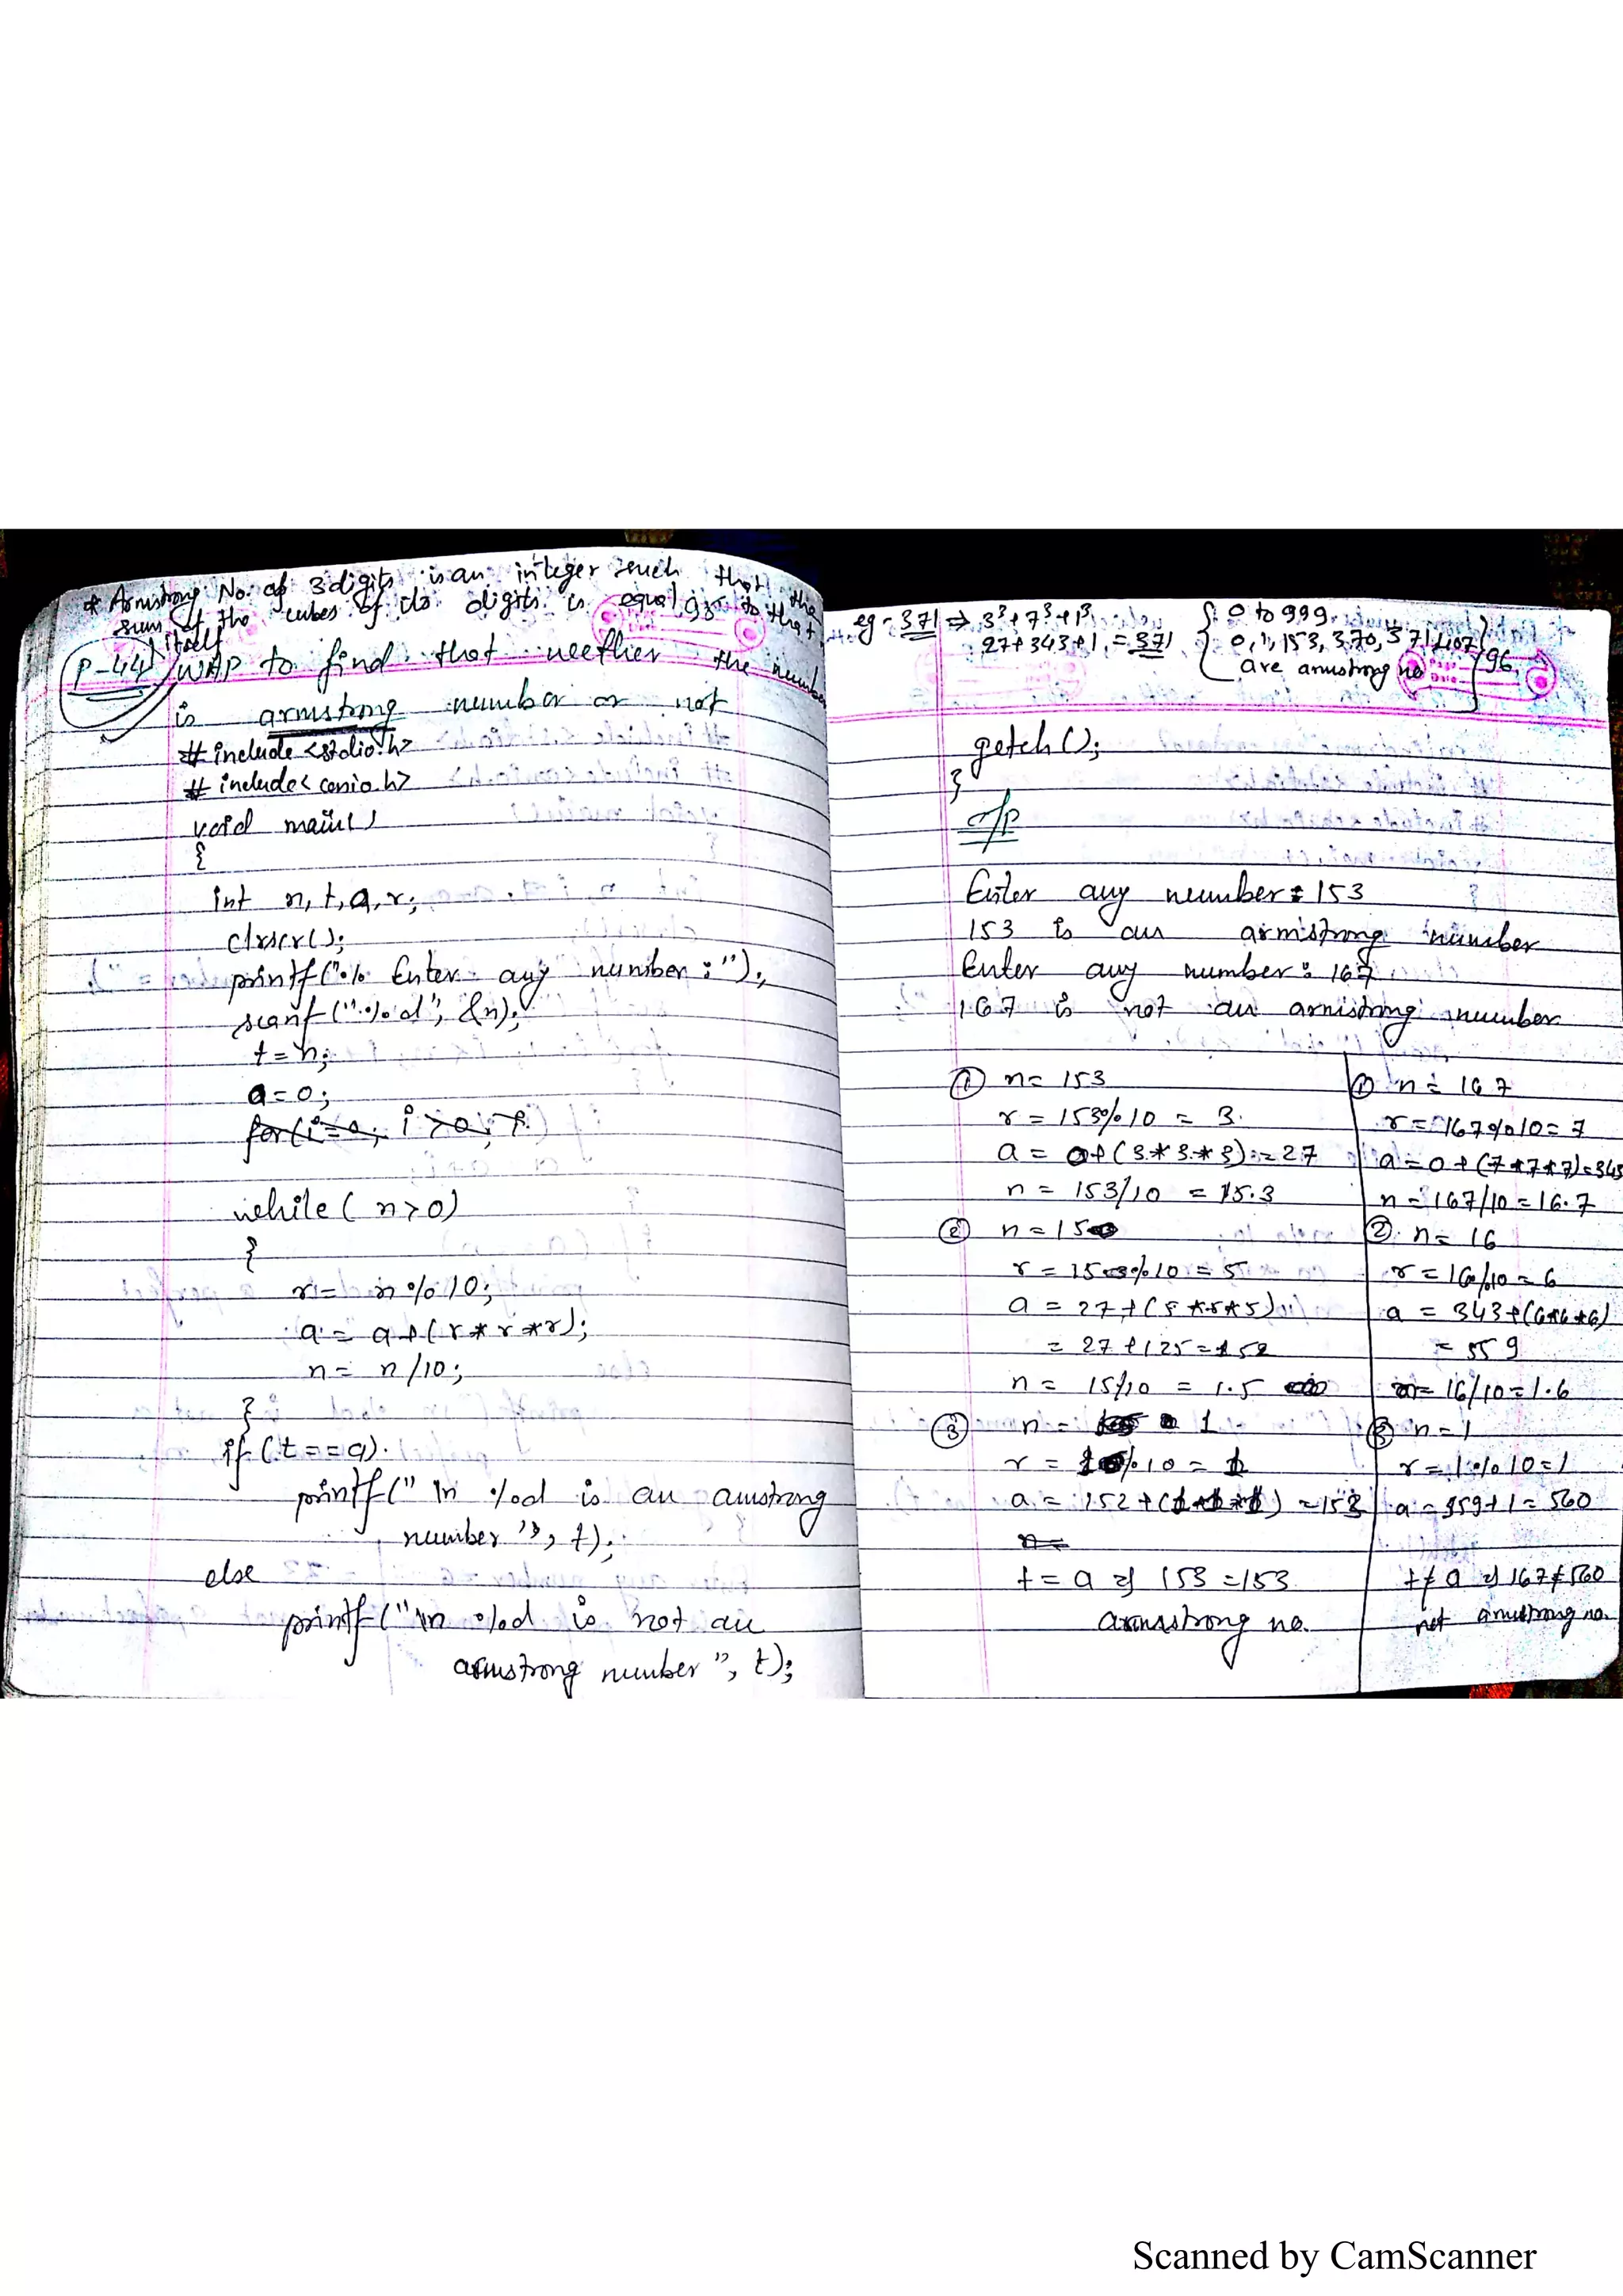 * Armstrong No. of 3 digits is an integer such that the
sum of the cubes of its digits is equal to that
itself
95
P-44 WAP to find that weether the number
is armstrong number or not
#include <stdio.h>
#include<conio.h>
void main()
{
int n, t, a, r;
clrscr();
printf("% Enter any number :");
scanf("%d", &n);
t = n;
a = 0;
for(i=0; i>0;
while ( n>0)
{
r = n % 10;
a = a + (r * r * r);
n = n /10;
}
if (t == a)
printf(" \n %d is an amstrong
number ", t);
else
printf("\n %d is not an
armstrong number ", t);
eg - 371 ⇒ 3³ + 7³ + 1³
27 + 343 + 1 = 371
{ 0 to 999
0, 1, 153, 370, 371, 407
are armstrong no }
96
getch();
}
O/P
Enter any number : 153
153 is an armstrong number
Enter any number : 167
167 is not an armstrong number
① n = 153
r = 153%10 = 3
a = 0+(3*3*3) = 27
n = 153/10 = 15.3
② n = 15
r = 15%10 = 5
a = 27+(5*5*5)
= 27+125 = 152
n = 15/10 = 1.5
③ n = 1
r = 1%10 = 1
a = 152+(1*1*1) = 153
n =
t = a ⇒ 153 = 153
armstrong no.
① n = 167
r = 167%10 = 7
a = 0+(7*7*7)=343
n = 167/10 = 16.7
② n = 16
r = 16%10 = 6
a = 343+(6*6*6)
= 559
n = 16/10 = 1.6
③ n = 1
r = 1%10 = 1
a = 559+1 = 560
t ≠ a ⇒ 167 ≠ 560
not armstrong no.
Scanned by CamScanner